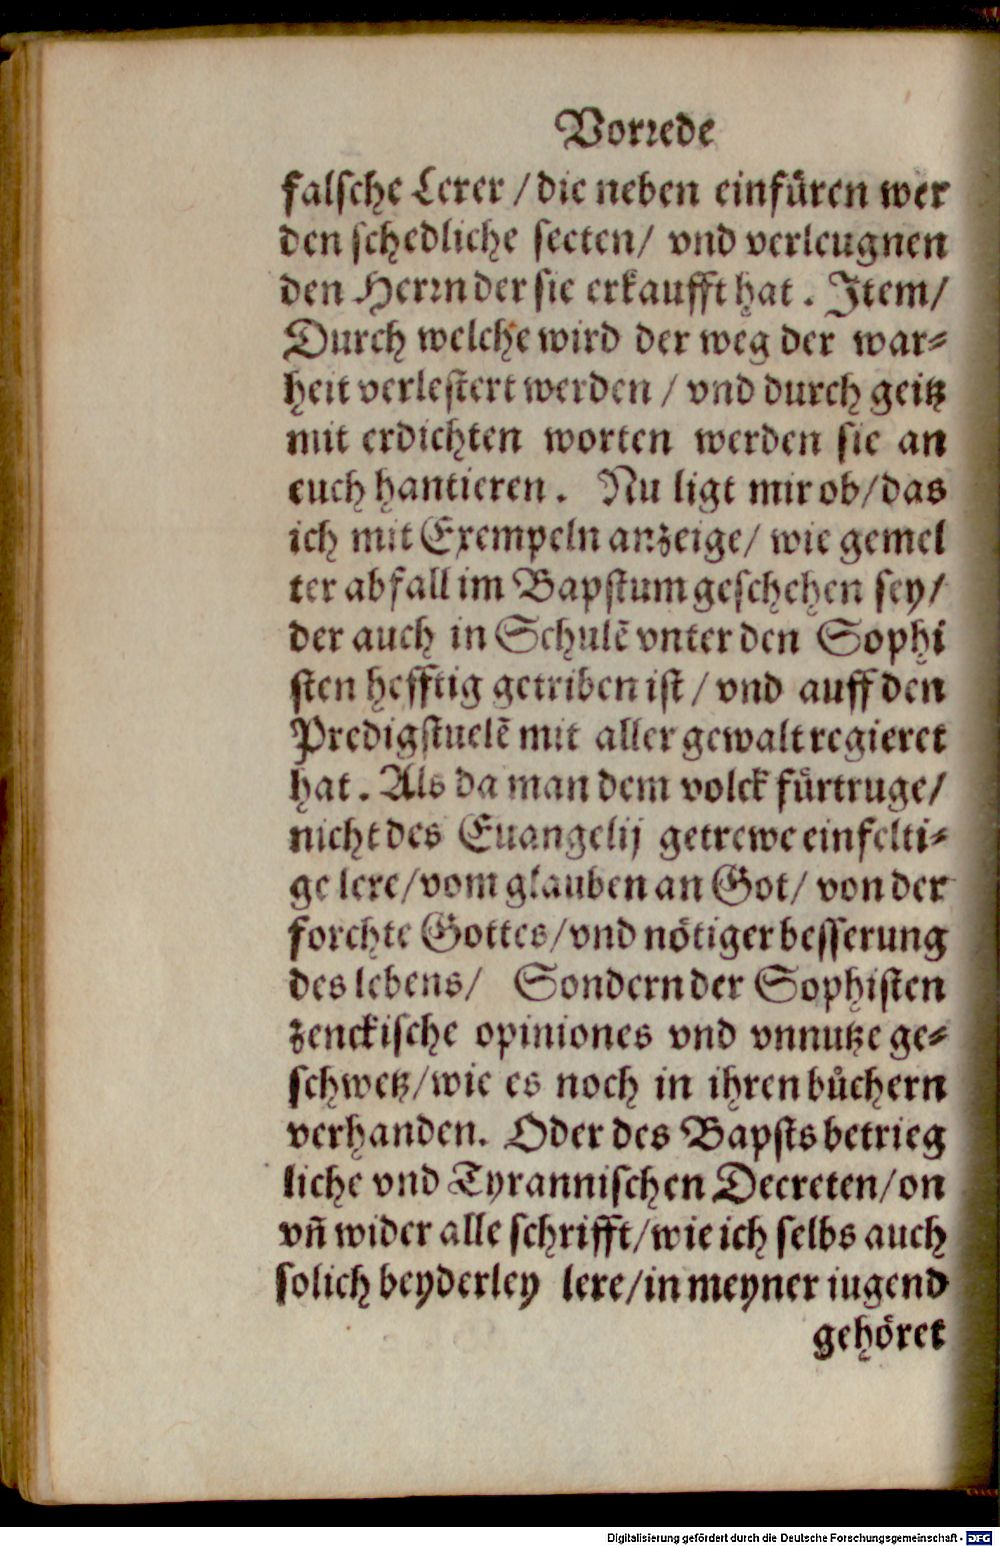 Vorrede
falsche Lerer / die neben einfüren wer
den schedliche secten/ vnd verleugnen
den Herrn der sie erkaufft hat. Item/
Durch welche wird der weg der war-
heit verlestert werden / vnd durch geitz
mit erdichten worten werden sie an
euch hantieren. Nu ligt mir ob/das
ich mit Exempeln anzeige/ wie gemel
ter abfall im Bapstum geschehen sey/
der auch in Schulẽ vnter den Sophi
sten hefftig getriben ist / vnd auff den
Predigstuelẽ mit aller gewalt regieret
hat. Als da man dem volck fürtruge/
nicht des Euangelij getrewe einfelti-
ge lere/vom glauben an Got/ von der
forchte Gottes/vnd nötiger besserung
des lebens/ Sondern der Sophisten
zenckische opiniones vnd vnnutze ge-
schwetz/wie es noch in ihren bůchern
verhanden. Oder des Bapsts betrieg
liche vnd Tyrannischen Decreten/on
vñ wider alle schrifft/wie ich selbs auch
solich beyderley lere/in meyner iugend
gehöret
Digitalisierung gefördert durch die Deutsche Forschungsgemeinschaft - DFG